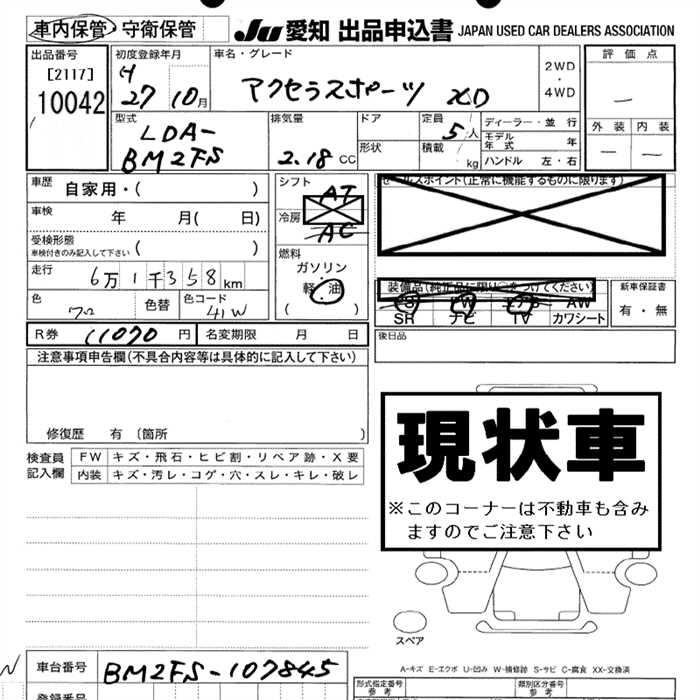 車内保管・守衛保管
JU 愛知 出品申込書 JAPAN USED CAR DEALERS ASSOCIATION
出品番号
[2117]
10042
初度登録年月
H
27 10月
車名・グレード
アクセラスポーツ XD
2WD
・
4WD
評価点
—
外装 内装
— —
型式
LDA-
BM2FS
排気量
2.18 CC
ドア
形状
定員
5人
積載
kg
ディーラー・並行
モデル年式 年
ハンドル 左・右
車歴 自家用・( )
車検 年 月( 日)
受検形態
車検付きのみ記入して下さい ( )
走行 6万1千358km
色 色替 色コード 41W
シフト AT
冷房 AC
燃料
ガソリン
軽油
( )
セールスポイント(正常に機能するものに限ります)
装備品(純正品に限り○をつけてください)
PS PW エアB AW
SR ナビ TV カワシート
新車保証書
有・無
R券 11070円 名変期限 月 日
後日品
注意事項申告欄(不具合内容等は具体的に記入して下さい)
修復歴 有 〔箇所 〕
検査員
記入欄
FW キズ・飛石・ヒビ割・リペア跡・X要
内装 キズ・汚レ・コゲ・穴・スレ・キレ・破レ
現状車
※このコーナーは不動車も含み
ますのでご注意下さい
スペア
A-キズ E-エクボ U-凹み W-補修跡 S-サビ C-腐食 XX-交換済
車台番号 BM2FS-107845
登録番号
形式指定番号
参考
類別区分番号
参考